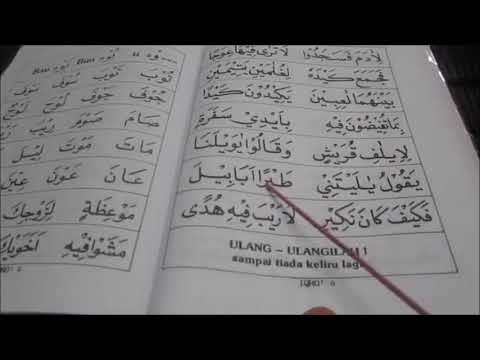 لِاٰدَمَ فَسَجَدُوْا لَاتَرٰى فِيْهَا عِوَجًا
فَجَمَعَ كَيْدَهُ لِغُلٰمَيْنِ يَتِيْمَيْنِ
بَيْنَهُمَا لٰعِبِيْنَ يَكِيْدُوْنَ كَيْدًا
بِمَاتُفِيْضُوْنَ فِيْهِ بِاَيْدِيْ سَفَرَةٍ
لِاِيْلٰفِ قُرَيْشٍ وَقَالُوْا يٰوَيْلَنَا
يَقُوْلُ يٰلَيْتَنِيْ طَيْرًا اَبَابِيْلَ
فَكَيْفَ كَانَ نَكِيْرِ لَارَيْبَ فِيْهِ هُدًى
ULANG - ULANGILAH !
sampai tiada keliru lagi
IQRO' 6
جُوْفَ جَوْفَ لُوْحَ
صَامَ صَوْمَ رِيْبَ
مَاتَ مَوْتَ لِيْلَ
عَانَ عَوْنَ عِيْنَ
مَوْعِظَةً لِزَوْجِكَ
مَشَوْا فِيْهِ اَخَوَيْكَ
IQRO' 6